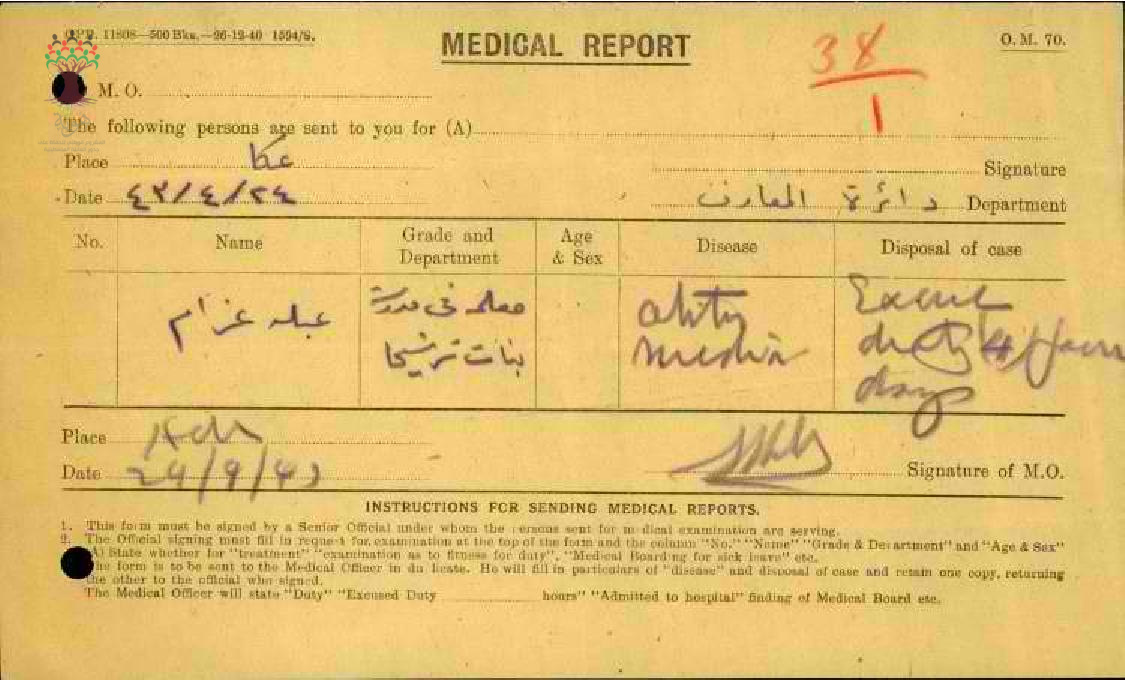 GPP. 11808—500 Bks.—26-12-40 1594/S.
MEDICAL REPORT
O. M. 70.
38
1
M. O.
The following persons are sent to you for (A)
Place عكا
Signature
Date ٤٣/٤/٢٤
دائرة المعارف Department
No. Name Grade and Department Age & Sex Disease Disposal of case
عبله عزام
معلمه في مدرسة
بنات ترشيحا
otitis
media
Excuse
duty 4
days
Place
Date 24/4/43
Signature of M.O.
INSTRUCTIONS FOR SENDING MEDICAL REPORTS.
1. This form must be signed by a Senior Official under whom the persons sent for medical examination are serving.
2. The Official signing must fill in request for examination at the top of the form and the column "No." "Name" "Grade & Department" and "Age & Sex"
(A) State whether for "treatment" "examination as to fitness for duty", "Medical Boarding for sick leave" etc.
The form is to be sent to the Medical Officer in du licate. He will fill in particulars of "disease" and disposal of case and retain one copy, returning
the other to the official who signed.
The Medical Officer will state "Duty" "Excused Duty hours" "Admitted to hospital" finding of Medical Board etc.